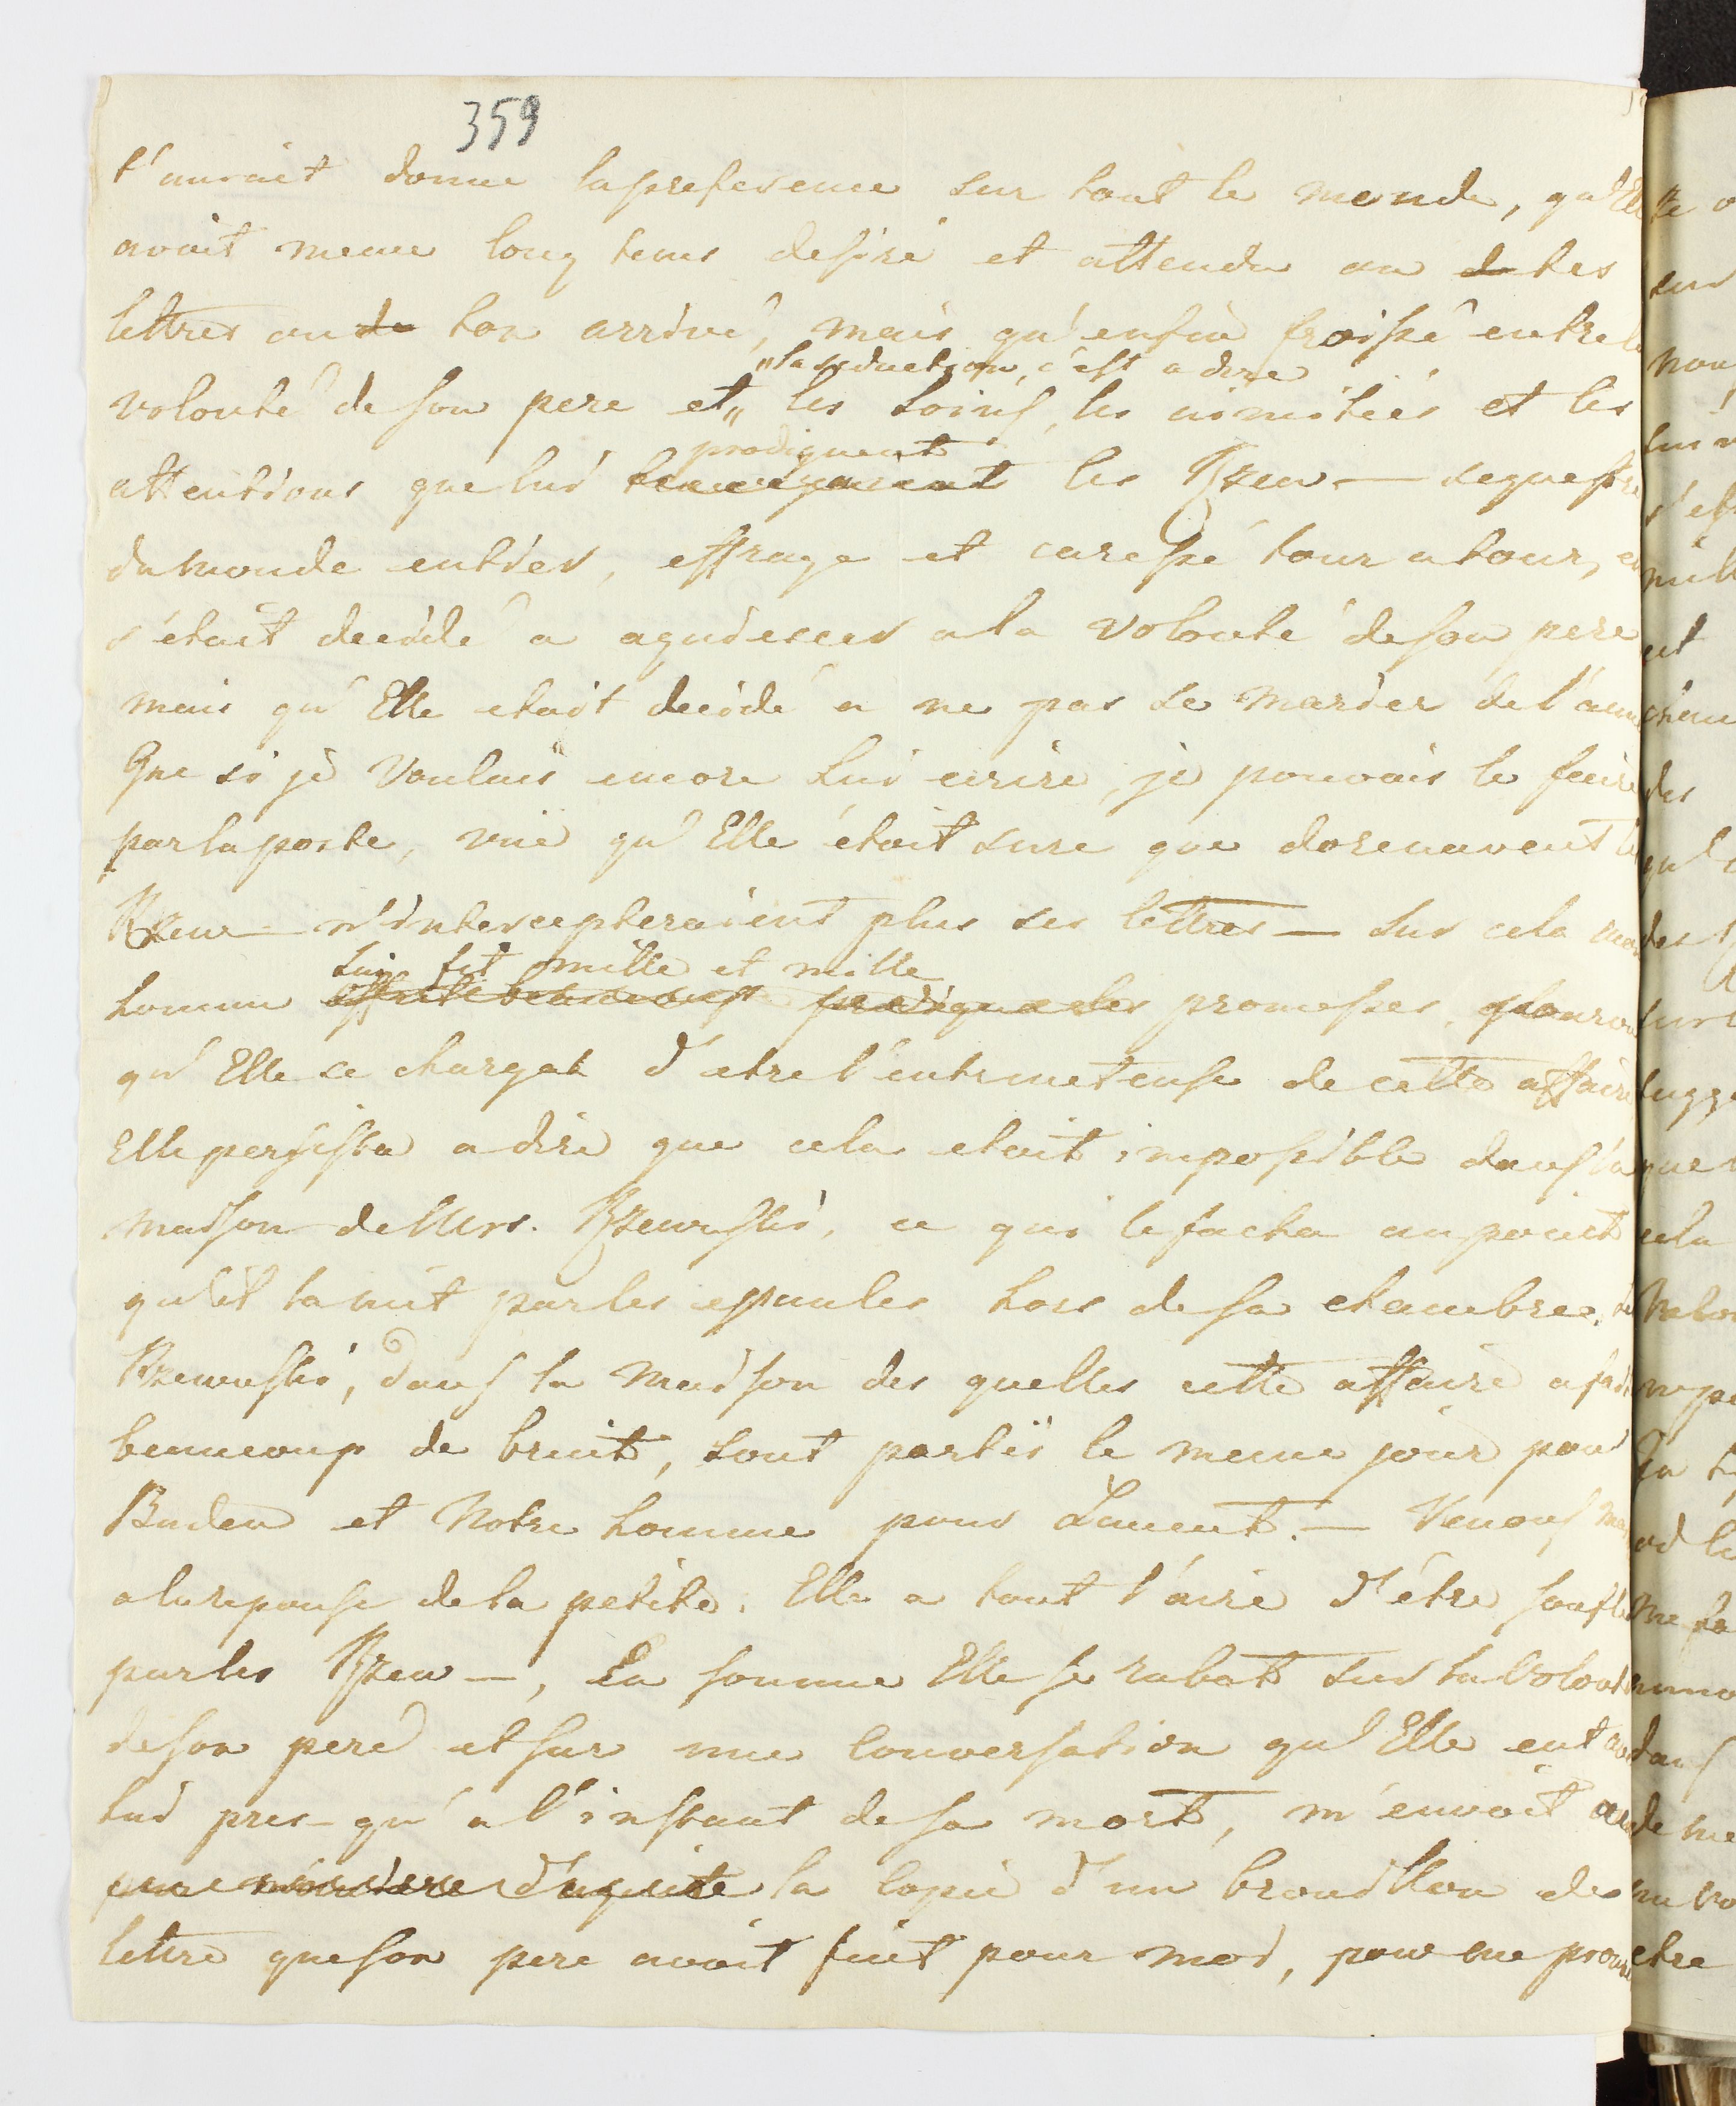 359
t'aurait donne la preference sur tout le monde, qu'Elle
avait meme long tems desiré et attendu ou d tes
lettres ou de ton arrivé, mais qu'enfin froissé entre la
"la seduction, c'est a dire
volonté de son pere et" les soins, les aimitiés et les
prodiguent
attentions que lui les Rzew — sequestré
du monde entier, effraye et caressé tour a tour,
s'etait decidé a aquiescer a la volonté de son pere
mais qu'Elle etait decidé a ne pas se marier de l'année
Que si je voulais encore lui ecrire, je pouvais le faire
par la poste, vue qu'Elle était sure que dorenavent les
Rzew — n'intercepteraient plus ses lettres — sur cela mon
lui fit mille et mille
homme offrit beaucoup prodigua des promesses, pourvu
qu'Elle se chargat d'etre l'entremeteuse de cette affaire
Elle persista a dire que cela etait impossible dans la
maison de Mrs. Rzewuski, ce qui le facha au point
qu'il la mit par les epaules hors de sa chambre.
Rzewuski, dans la maison des quelles cette affaire a fait
beaucoup de bruit, sont partis le meme jour pour
Baden et Notre homme pour — Venons
a la reponse de la petite. Elle a tout l'aire d'étre soufle
par les Rzew —, En somme Elle se rabat sur la volonté
de son pere et sur une conversation qu'Elle eut avec
lui pres-qu'a l'instant de sa mort, m'envoit
la copie d'un brouillon de
lettre que son pere avait fait pour moi, pour me prouver